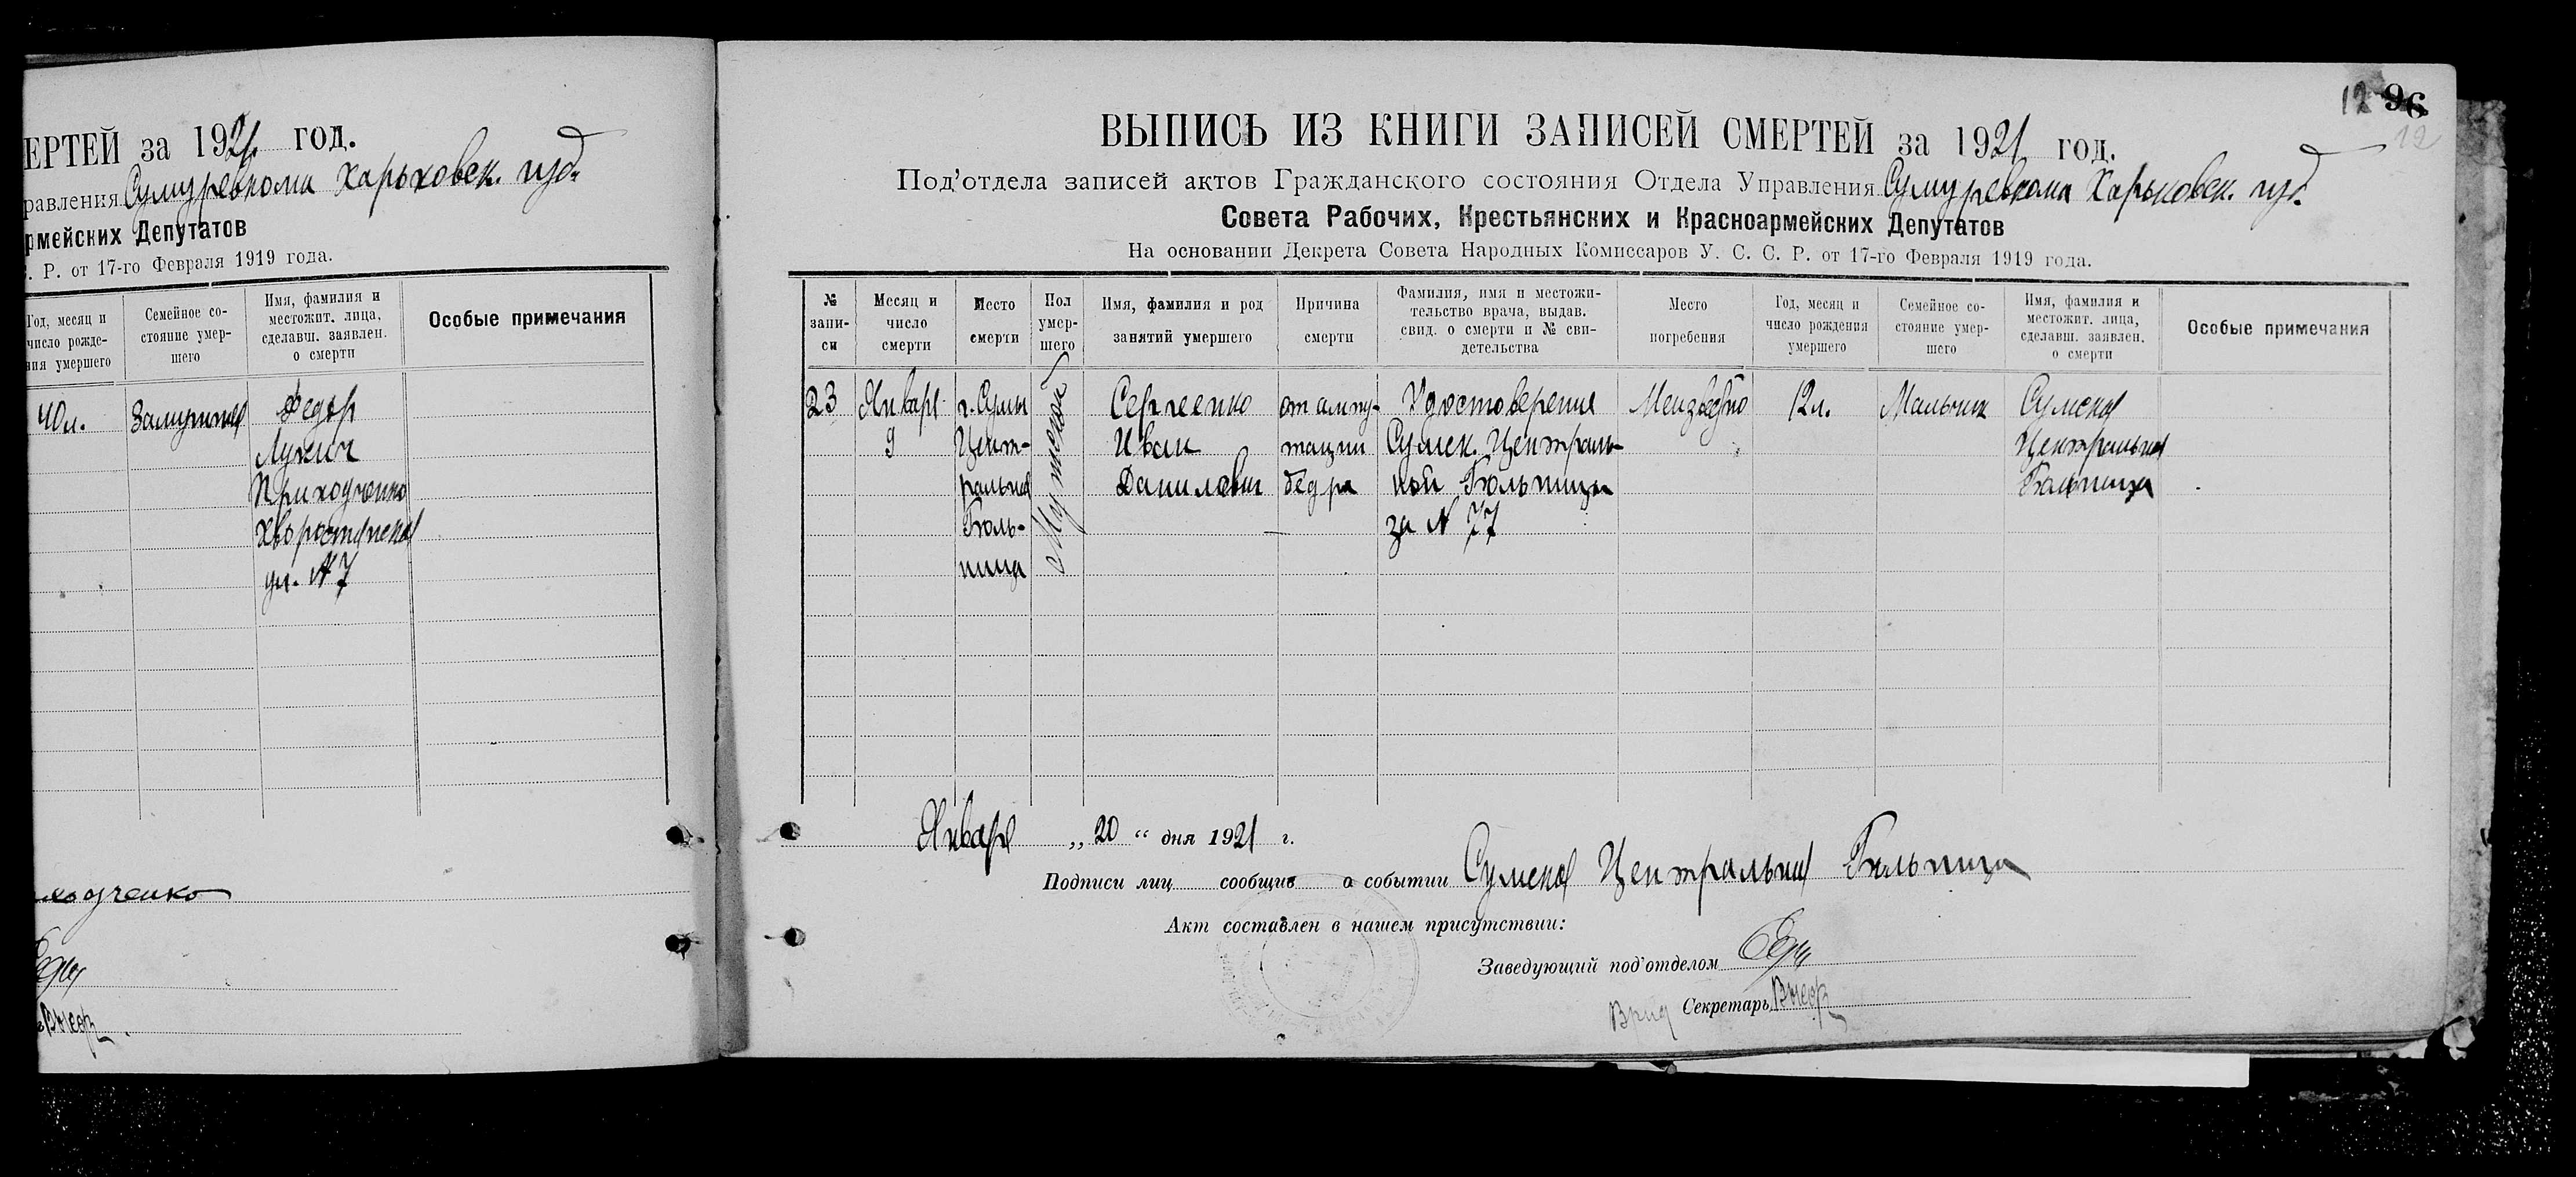 ЕРТЕЙ за 1921 год.
равления Сумуревкома Харьковск. губ.
рмейских Депутатов
. Р. от 17-го Февраля 1919 года.
Год, месяц и
число рожде-
ния умершего
Семейное со-
стояние умер-
шего
Имя, фамилия и
местожит. лица,
сделавш. заявлен.
о смерти
Особые примечания
40 л.
Замужняя
Федор
Лукич
Приходченко
Хворостянска
ул. № 7
12 96
12
ВЫПИСЬ ИЗ КНИГИ ЗАПИСЕЙ СМЕРТЕЙ за 1921 год.
Под'отдела записей актов Гражданского состояния Отдела Управления Сумуревкома Харьковск. губ.
Совета Рабочих, Крестьянских и Красноармейских Депутатов
На основании Декрета Совета Народных Комиссаров У. С. С. Р. от 17-го Февраля 1919 года.
№
запи-
си
Месяц и
число
смерти
Место
смерти
Пол
умер-
шего
Имя, фамилия и род
занятий умершего
Причина
смерти
Фамилия, имя и местожи-
тельство врача, выдав.
свид. о смерти и № сви-
детельства
Место
погребения
Год, месяц и
число рождения
умершего
Семейное со-
стояние умер-
шего
Имя, фамилия и
местожит. лица,
сделавш. заявлен.
о смерти
Особые примечания
23
Января
9
г. Сумы
Цент-
ральная
Боль-
ница
Мужской
Сергеенко
Иван
Данилович
от ампу-
тации
бедра
Удостоверение
Сумск. Централь-
ной Больницы
за № 77
Неизвестно
12 л.
Мальчик
Сумская
Центральная
Больница
Января „ 20 “ дня 1921 г.
Подписи лиц сообщив о событии Сумская Центральная Больница
Акт составлен в нашем присутствии:
Заведующий под'отделом
Врид Секретарь